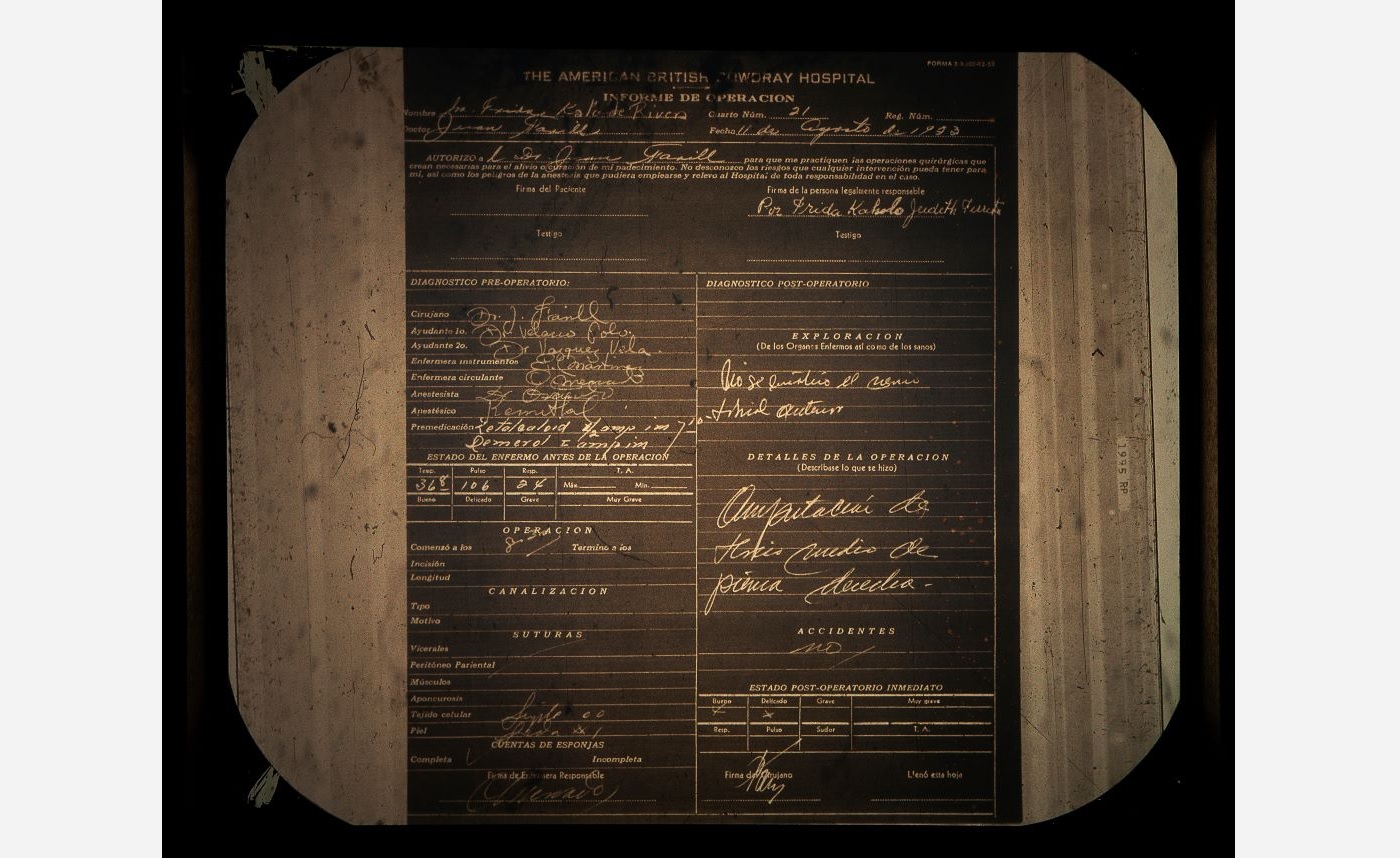 FORMA
THE AMERICAN BRITISH COWDRAY HOSPITAL
INFORME DE OPERACION
Nombre Sra. Frida Kalo de Rivera Cuarto Núm. 21 Reg. Núm.
Doctor Juan Farill Fecha 11 de Agosto de 1953
AUTORIZO a Dr Juan Farill para que me practiquen las operaciones quirúrgicas que
crean necesarias para el alivio o curación de mi padecimiento. No desconozco los riesgos que cualquier intervención pueda tener para
mí, así como los peligros de la anestesia que pudiera emplearse y relevo al Hospital de toda responsabilidad en el caso.
Firma del Paciente
Testigo
Firma de la persona legalmente responsable
Por Frida Kahalo Judith
Testigo
DIAGNOSTICO PRE-OPERATORIO:
Cirujano Dr. J. Farill
Ayudante 1o. Dr Velasco Polo.
Ayudante 2o. Dr Vazquez Vela.
Enfermera instrumentos
Enfermera circulante
Anestesista
Anestésico Kemithal
Premedicación 1/2 amp im
Demerol 1 amp im
ESTADO DEL ENFERMO ANTES DE LA OPERACION
Temp. Pulso Resp. T. A.
36 8 106 24 Máx. Mín.
Bueno Delicado Grave Muy Grave
OPERACION
Comenzó a las Terminó a las
Incisión
Longitud
CANALIZACION
Tipo
Motivo
SUTURAS
Vicerales
Peritóneo Pariental
Músculos
Aponcurosis
Tejido celular Simple 00
Piel
CUENTAS DE ESPONJAS
Completa Incompleta
Firma de Enfermera Responsable
DIAGNOSTICO POST-OPERATORIO
EXPLORACION
(De los Organos Enfermos así como de los sanos)
No se el nervio
tibial anterior
DETALLES DE LA OPERACION
(Descríbase lo que se hizo)
Amputación de
tercio medio de
pierna derecha-
ACCIDENTES
no
ESTADO POST-OPERATORIO INMEDIATO
Bueno Delicado Grave Muy grave
x
Resp. Pulso Sudor T. A.
Firma del Cirujano Llenó esta hoja
1995 RP